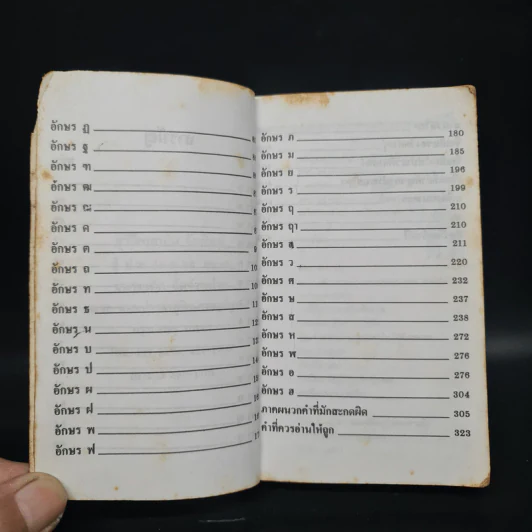 อักษร ฏ
อักษร ฐ
อักษร ฑ
อักษร ฒ
อักษร ณ
อักษร ด
อักษร ต
อักษร ถ
อักษร ท
อักษร ธ
อักษร น
อักษร บ
อักษร ป
อักษร ผ
อักษร ฝ
อักษร พ
อักษร ฟ
อักษร ภ 180
อักษร ม 185
อักษร ย 196
อักษร ร 199
อักษร ฤ 210
อักษร ฤๅ 210
อักษร ล 211
อักษร ว 220
อักษร ศ 232
อักษร ษ 237
อักษร ส 238
อักษร ห 272
อักษร 276
อักษร อ 276
อักษร ฮ 304
ภาคผนวกคำที่มักสะกดผิด 305
คำที่ควรอ่านให้ถูก 323